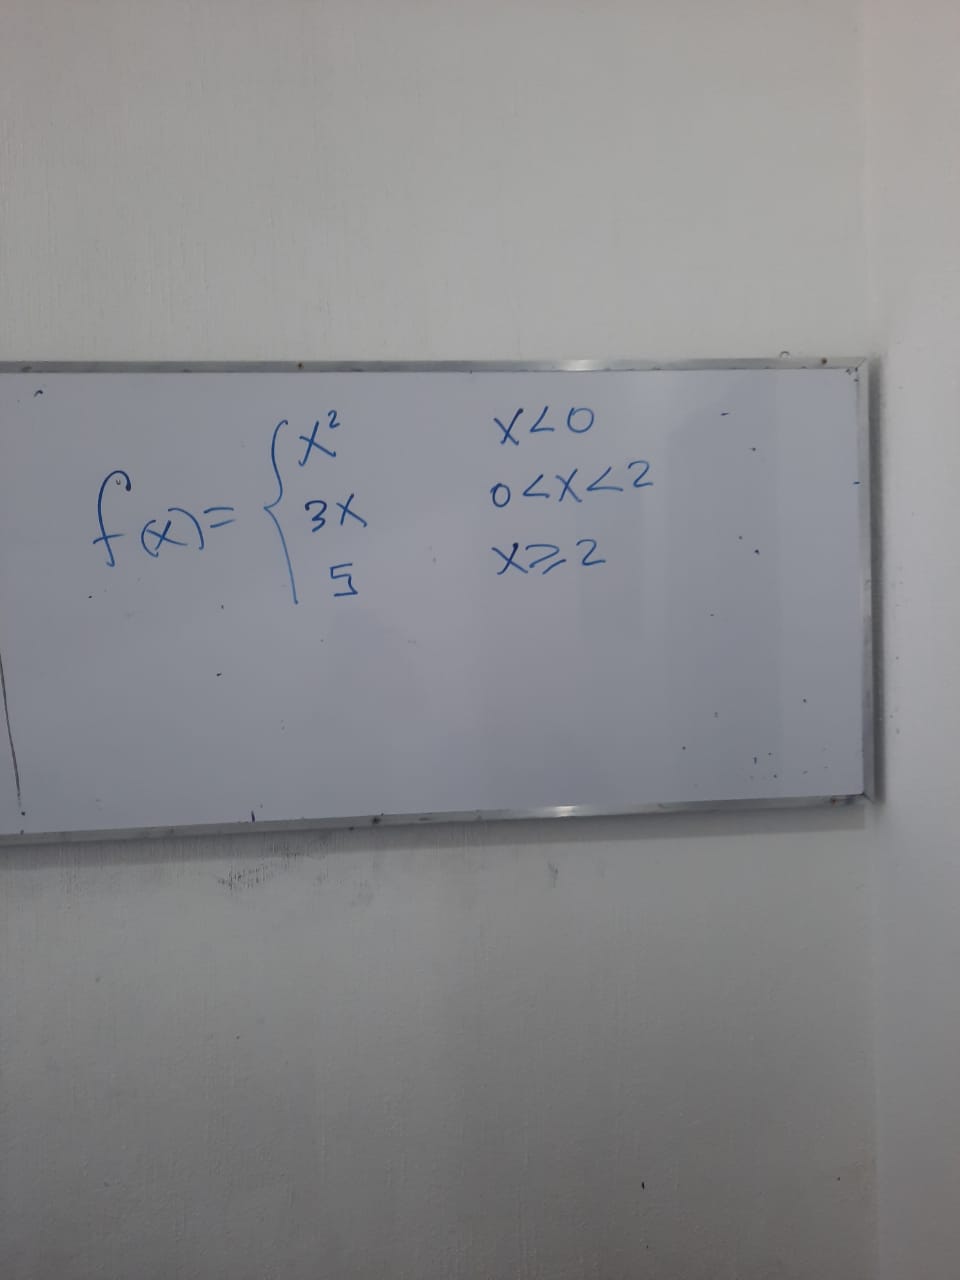 f(x) = { x² x<0
3x 0<x<2
5 x⩾2